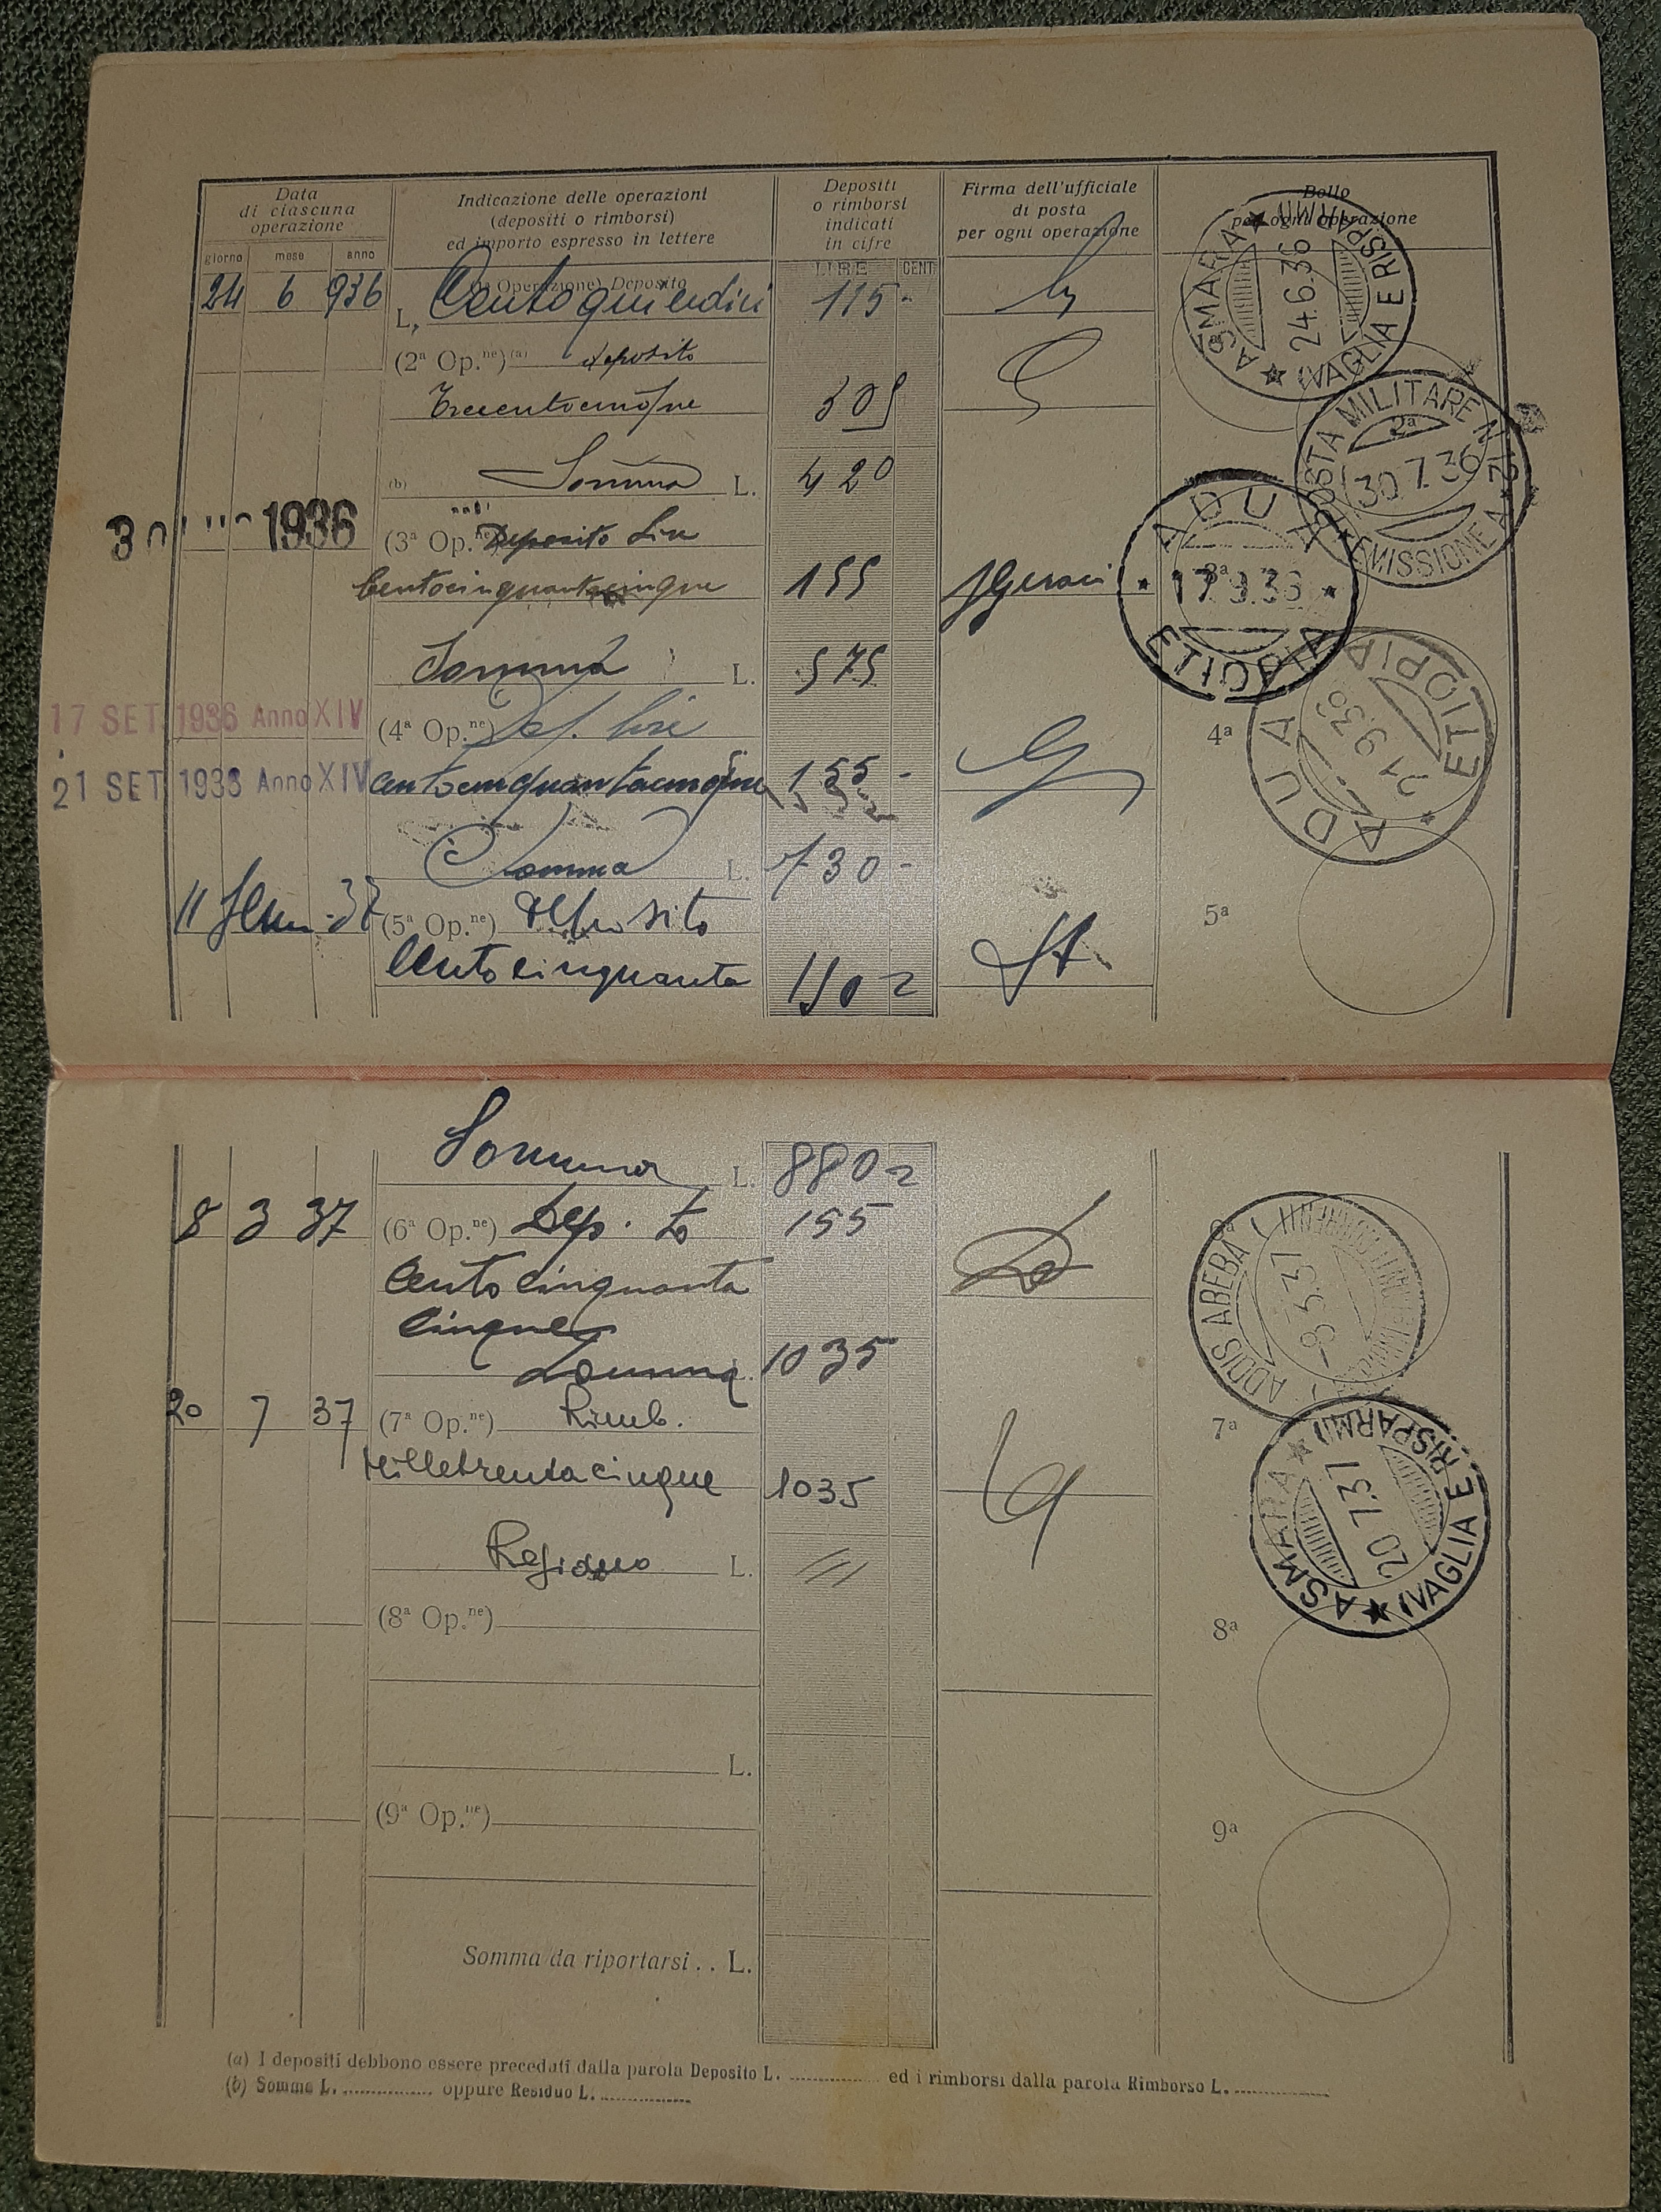 Data
di ciascuna
operazione
Indicazione delle operazioni
(depositi o rimborsi)
ed importo espresso in lettere
Depositi
o rimborsi
indicati
in cifre
Firma dell'ufficiale
di posta
per ogni operazione
Bollo
per ogni operazione
giorno mese anno
LIRE CENT.
24 6 936
(1ª Operazione) Deposito
L. Centoquindici 115-
ASMARA
24.6.36
(VAGLIA E RISPARMI)
(2ª Op.ne) (a) deposito
Trecentocinque 305
2ª
POSTA MILITARE N.
30.7.36
EMISSIONE A
(b) Somma L. 420
30 1936
(3ª Op.ne) Deposito Lire
Centocinquantacinque 155 Geraci
3ª
ADUA
17.9.36
ETIOPIA
Somma L. 575
17 SET 1936 Anno XIV
(4ª Op.ne) Dep. Lire
4ª
21 SET 1936 Anno XIV
Centocinquantacinque 155-
ADUA
21.9.36
ETIOPIA
Somma L. 730-
11 Genn. 37 (5ª Op.ne) Deposito
5ª
Centocinquanta 150
Somma L. 880
8 3 37 (6ª Op.ne) Dep.to 155
6ª
ADDIS ABEBA
-8.3.37
Centocinquanta
Cinque
Somma 1035
20 7 37 (7ª Op.ne) Rimb.
7ª
Milletrentacinque 1035
ASMARA
20.7.37
(VAGLIA E RISPARMI)
Residuo L.
(8ª Op.ne)
8ª
L.
(9ª Op.ne)
9ª
Somma da riportarsi . . L.
(a) I depositi debbono essere preceduti dalla parola Deposito L. ............ ed i rimborsi dalla parola Rimborso L. ............
(b) Somma L. ............ oppure Residuo L. ............